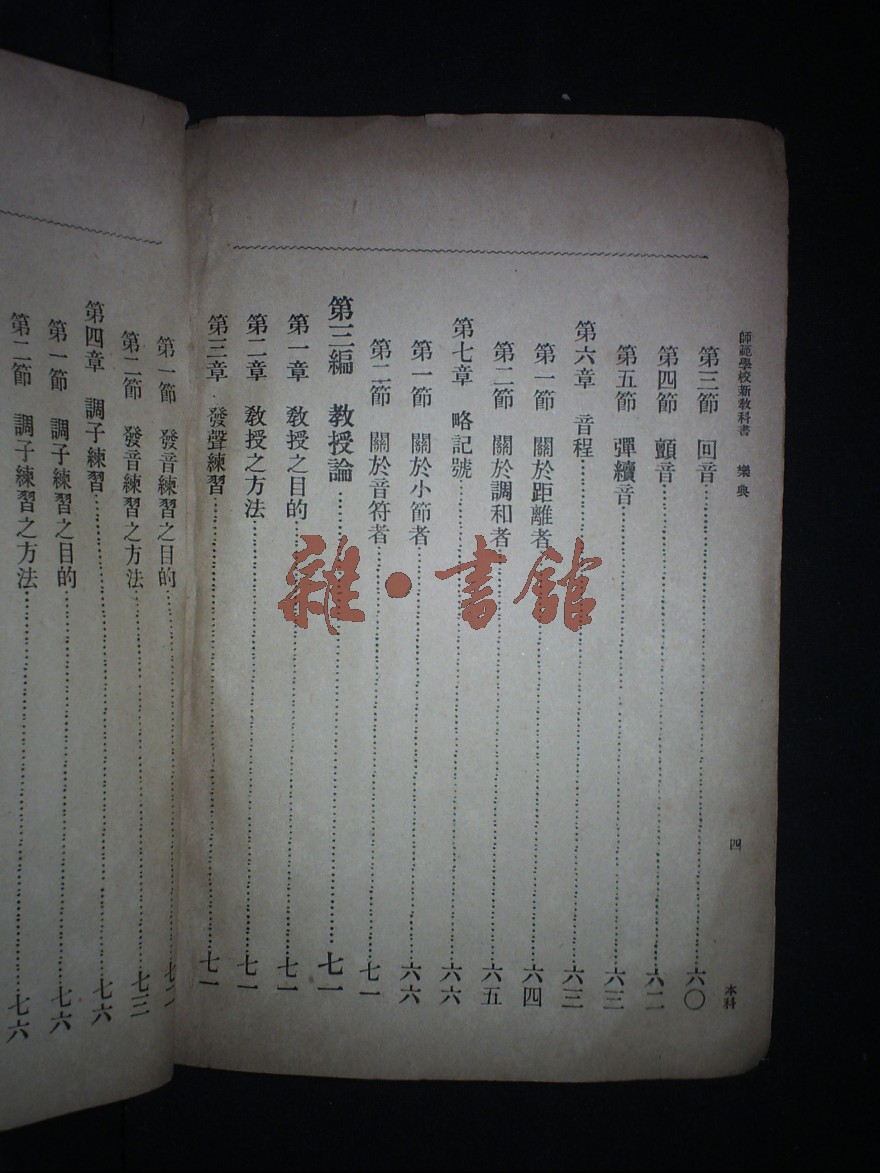 師範學校新敎科書 樂典 四 本科
第三節 回音 六〇
第四節 顫音 六二
第五節 彈續音 六三
第六章 音程 六三
第一節 關於距離者 六四
第二節 關於調和者 六五
第七章 略記號 六六
第一節 關於小節者 六六
第二節 關於音符者 七一
第三編 敎授論 七一
第一章 敎授之目的 七一
第二章 敎授之方法 七一
第三章 發聲練習 七一
第一節 發音練習之目的 七二
第二節 發音練習之方法 七三
第四章 調子練習 七六
第一節 調子練習之目的 七六
第二節 調子練習之方法 七六
雜·書館